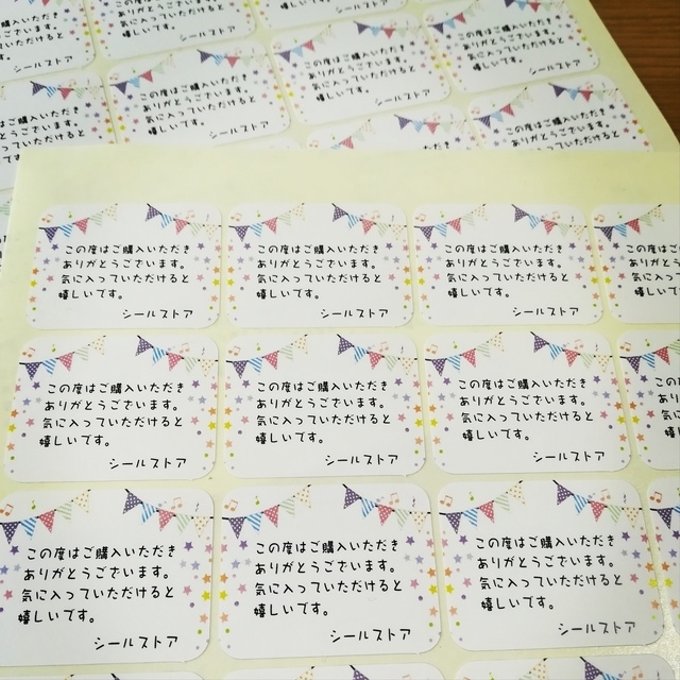 シールストア
気に入っていただけると
嬉しいです。
シールストア
シールストア
この度はご購入いただき
ありがとうございます。
気に入っていただけると
嬉しいです。
シールストア
この度はご購入いただき
ありがとうございます。
気に入っていただけると
嬉しいです。
シールストア
この度はご購入いただき
ありがとうございます。
気に入っていただけると
嬉しいです。
シールストア
この度はご購入いただき
ありがとうございます。
気に入っていただけると
この度はご購入いただき
ありがとうございます。
気に入っていただけると
嬉しいです。
シールストア
この度はご購入いただき
ありがとうございます。
気に入っていただけると
嬉しいです。
シールストア
この度はご購入いただき
ありがとうございます。
気に入っていただけると
嬉しいです。
シールストア
この度はご購入いただき
ありがとうございます。
気に入っていただけると
嬉しいです。
シールストア
この度はご購入いただき
ありがとうございます。
気に入っていただけると
嬉しいです。
シールストア
この度はご購入いただき
ありがとうございます。
気に入っていただけると
嬉しいです。
シールストア
この度はご購入いただき
ありがとうございます。
気に入っていただけると
嬉しいです。
シールストア
この度はご購入いただき
ありがとうございます。
気に入っていただけると
嬉しいです。
シールストア
この度はご購入いただき
ありがとうございます。
気に入っていただけると
嬉しいです。
シールストア